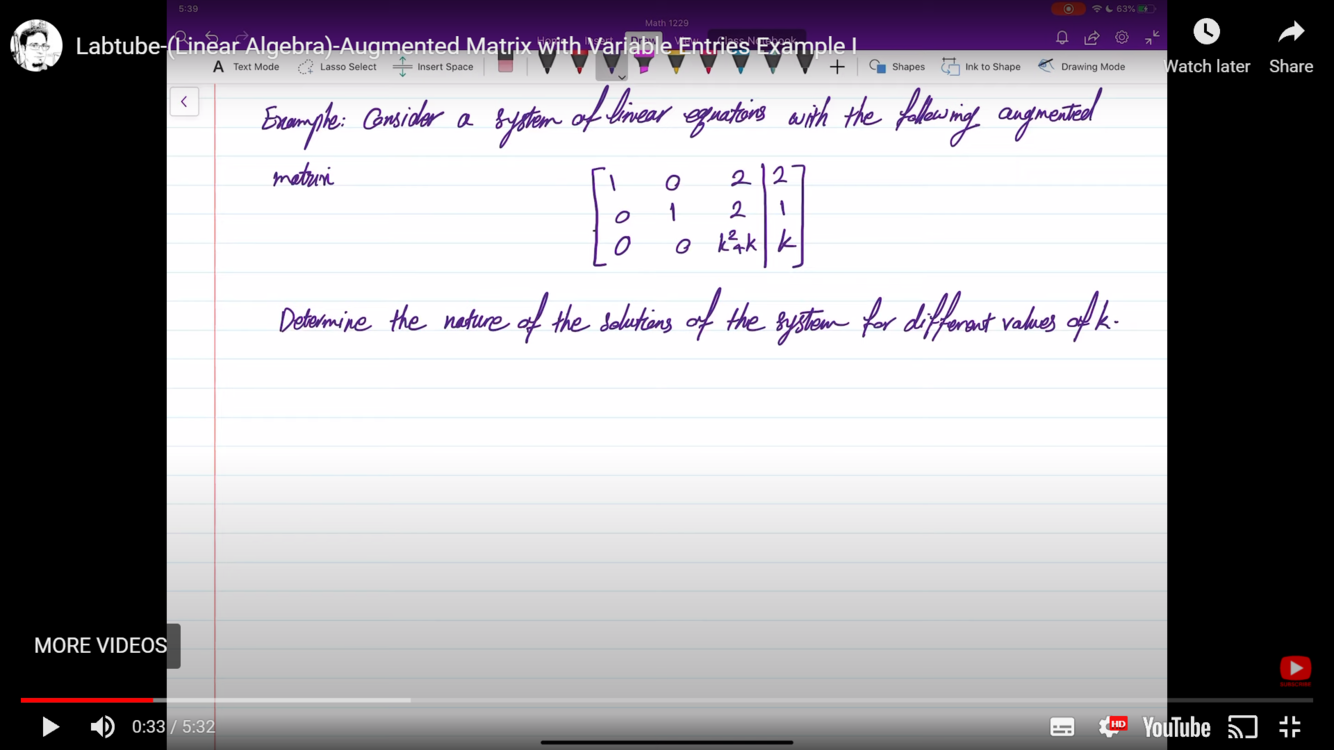 5:39
Math 1229
63%
Labtube-(Linear Algebra)-Augmented Matrix with Variable Entries Example I
Insert Draw View Class Notebook
Watch later
Share
A Text Mode Lasso Select Insert Space Shapes Ink to Shape Drawing Mode
Example: Consider a system of linear equations with the following augmented
matrix
1 0 2 | 2
0 1 2 | 1
0 0 k²+k | k
Determine the nature of the solutions of the system for different values of k.
MORE VIDEOS
SUBSCRIBE
0:33 / 5:32
HD
YouTube